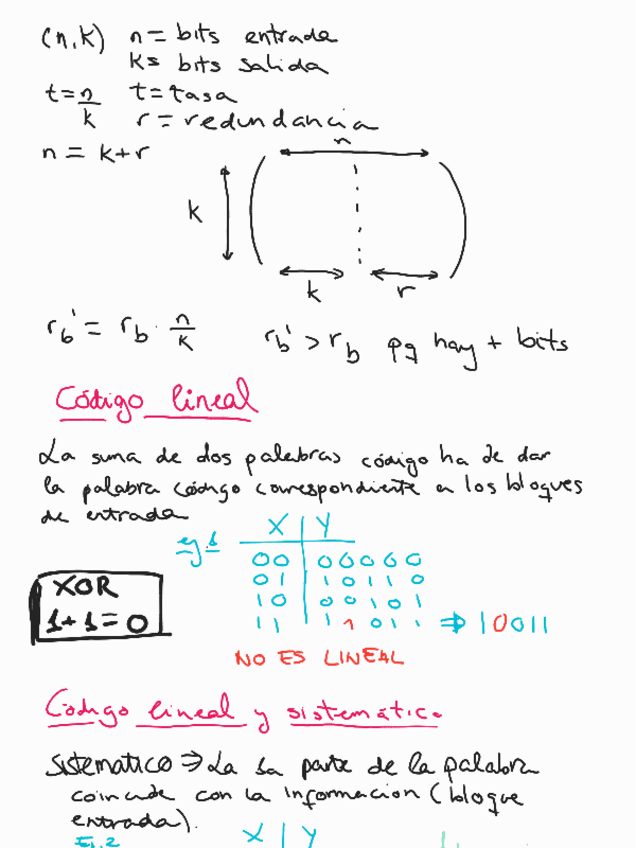 (n,k) n = bits entrada
k = bits salida
t = n/k t = tasa
r = redundancia
n = k+r
n
k
k r
rb' = rb · n/k rb' > rb pq hay + bits
Código lineal
La suma de dos palabras código ha de dar
la palabra código correspondiente a los bloques
de entrada
ej 1 X | Y
00 | 00000
01 | 10110
10 | 00101
11 | 11011 ⇒ 10011
NO ES LINEAL
XOR
1+1=0
Código lineal y sistemático
Sistematico ⇒ La 1a parte de la palabra
coincide con la informacion (bloque
entrada).
Ej.2 X | Y